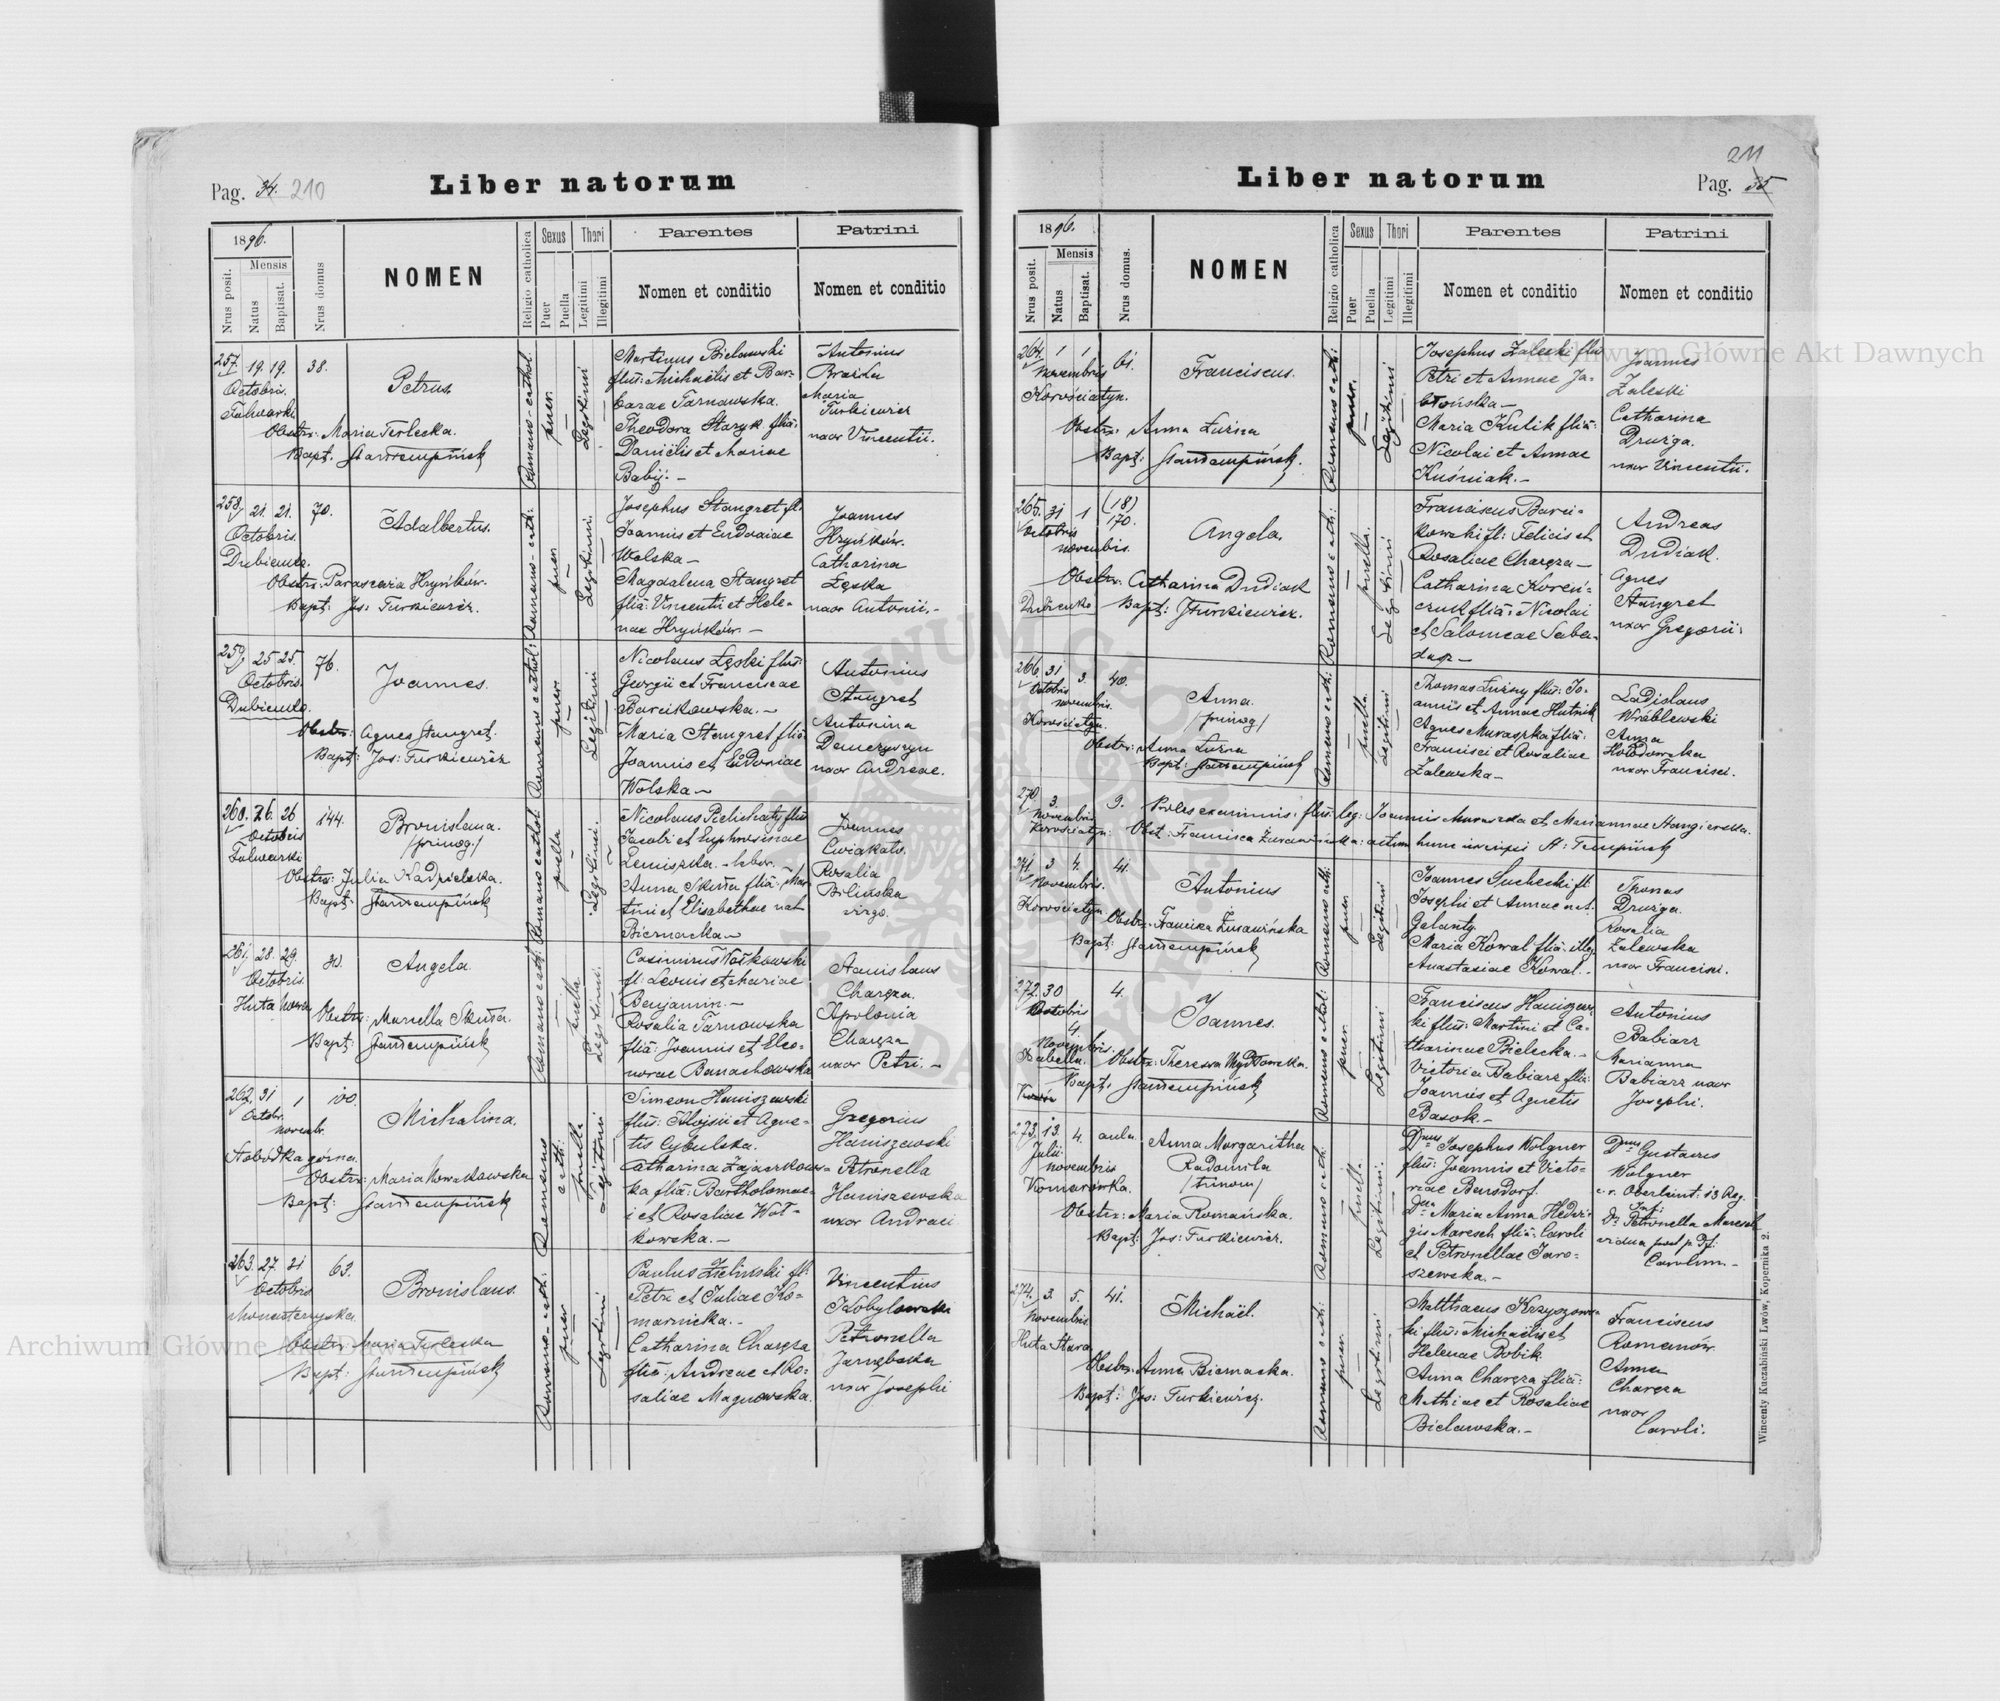 Pag. 34. 210
Liber natorum
1896.
Nrus posit.
Mensis
Natus
Baptisat.
Nrus domus
NOMEN
Religio catholica
Sexus
Puer
Puella
Thori
Legitimi
Illegitimi
Parentes
Nomen et conditio
Patrini
Nomen et conditio
257. 19. 19. 38.
Octobris.
Petrus
Obstr: Maria Terlecka.
Bapt:
Romano-cathol:
puer
Legitimi
Martinus Bielawski
flius: Michaëlis et Bar-
barae Tarnawska.
Theodora Staryk flia:
Daniëlis et Mariae
Babij. -
Antonius
Maria
Turkiewicz
uxor Vincentii.
258. 21. 21. 70.
Octobris.
Dubienko.
Adalbertus.
Obstr: Parascevia Hryńków.
Bapt: Jos: Turkiewicz.
Romano-cath:
puer
Legitimi.
Josephus Stangret fl.
Joannis et Eudoxiae
Wolska -
Magdalena Stangret
flia: Vincentii et Hele-
nae Hryńków. -
Joannes
Hryńków.
Catharina
Łęska
uxor Antonii. -
259. 25 25. 76.
Octobris.
Dubienko.
Joannes.
Obstr: Agnes Stangret.
Bapt: Jos: Turkiewicz
Romano cathol:
puer.
Legitimi
Nicolaus Łęski flius:
Georgii et Franciscae
Barcikowska. -
Maria Stangret flia:
Joannis et Eudoxiae
Wolska -
Antonius
Stangret
Antonina
Demczyszyn
uxor Andreae.
260. 26. 26 144.
Octobris
Folwarki
Bronislava.
/primog./
Obstr: Julia Kadzielska.
Bapt:
Romano cathol:
puella
Legitimi.
Nicolaus Pielichaty flius
Jacobi et Euphrosinae
Lemiszka. - labor.
Anna Skiba flia: Mar-
tini et Elisabethae nat
Biernacka -
Joannes
Rosalia
Bilińska
virgo.
261. 28. 29.
Octobris.
Huta nowa
Angela
Obstr: Marcella Skiba.
Bapt:
Romano cath:
puella
Legitimi.
Casimirus Wołkowski
fl: Leonis et Mariae
Benjamin. -
Rosalia Tarnowska
flia: Joannis et Eleo-
norae Banachowska
Stanislaus
Charęza.
Apolonia
Charęza
uxor Petri. -
262. 31 1 100.
Octobr.
novembr.
Słobódka górna.
Michalina.
Obstr: Maria Nowakowska
Bapt:
Romano
cath:
puella
Legitimi
Simeon Haniszewski
flius: Aloisii et Agne-
tis Cybulska.
Catharina Zajączkows-
ka flia: Bartholomae-
i et Rosaliae Woł-
kowska. -
Gregorius
Haniszewski
Petronella
Haniszewska
uxor Andreae
263. 27. 31 63.
Octobris
Monasterzyska.
Bronislaus.
Obstr: Maria Terlecka
Bapt:
Romano-cath:
puer
Legitimi
Paulus Zieliński fl:
Petri et Juliae Ko-
marnicka. -
Catharina Charęza
flia: Andreae et Ro-
saliae Magnowska.
Vincentius
Kobylański
Petronella
Jarzębska
uxor Josephi
211
Liber natorum
Pag. 35
1896.
Nrus posit.
Mensis
Natus
Baptisat.
Nrus domus.
NOMEN
Religio catholica
Sexus
Puer
Puella
Thori
Legitimi
Illegitimi
Parentes
Nomen et conditio
Patrini
Nomen et conditio
264. 1 1 61.
novembris
Korościatyn.
Franciscus.
Obstr: Anna Luźna
Bapt:
Romano cath:
puer.
Legitimi
Josephus Zaleski flius
Petri et Annae Ja-
błońska -
Maria Kulik flia:
Nicolai et Annae
Kuśniak. -
Joannes
Zaleski
Catharina
Drużga.
uxor Vincentii.
265. 31 1 (18)
170.
Octobris
novembris.
Angela.
Obstr: Catharina Dudiak
Dubienko Bapt: J. Turkiewicz.
Romano cath:
puella.
Legitimi
Franciscus Barci-
kowski fl: Felicis et
Rosaliae Charęza -
Catharina Koreń-
czuk flia: Nicolai
et Salomeae
Andreas
Dudiak.
Agnes
Stangret
uxor Gregorii.
266. 31 3. 40.
Octobris
novembris.
Korościatyn.
Anna.
/primog/
Obstr: Anna Luźna
Bapt:
Romano cath:
puella.
Legitimi
Thomas Luźny flius: Jo-
annis et Annae Hutnik
Agnes Muraszka flia:
Francisci et Rosaliae
Zalewska -
Ladislaus
Wróblewski
Anna
Hołodowska
uxor Francisci.
270 3. 9.
novembris
Korościatyn.
Proles exanimis: flius: leg: Joannis Muraszka et Mariannae
Obst: Francisca
271. 3 4. 41.
Novembris.
Korościatyn
Antonius
Obstr: Francisca Żurawińska
Bapt:
Romano cath:
puer
Legitimi
Joannes Suchecki fl.
Josephi et Annae nat.
Galanty.
Maria Kowal flia: illeg
Anastasiae Kowal. -
Thomas
Drużga.
Rosalia
Zalewska
uxor Francisci.
272. 30 4.
Octobris
4
Novembris.
Joannes.
Obstr: Theresia
Bapt:
Romano cathol:
puer
Legitimi
Franciscus Haniszews-
ki flius: Martini et Ca-
tharinae Bielecka. -
Victoria Babiarz flia:
Joannis et Agnetis
Basok. -
Antonius
Babiarz
Marianna
Babiarz uxor
Josephi.
273. 13. 4. aula.
Julii
novembris
Komarówka.
Anna Margaritha
Radomila
/trinom/
Obstr: Maria Romańska.
Bapt: Jos: Turkiewicz.
Romano cath:
puella.
Legitimi.
Dnus Josephus Wolgner
flius: Joannis et Victo-
riae Bensdorf.
Dna Maria Anna Hedvi-
gis Maresch flia: Caroli
et Petronellae Jaro-
szewska. -
Dnus Gustavus
Wolgner
c. r. Oberleint: 13 Reg.
Inf:
Da Petronella Maresch
vidua post
Carolum. -
274. 3. 5. 41.
Novembris
Huta Stara
Michaël.
Obstr: Anna Biernacka.
Bapt: Jos: Turkiewicz.
Romano cath:
puer
Legitimi
Matthaeus Krzyszows-
ki flius: Michaëlis et
Helenae Bobik.
Anna Charęza flia:
Mathiae et Rosaliae
Bielawska. -
Franciscus
Romanów.
Anna
Charęza
uxor
Caroli.
Wincenty Kuczabiński Lwów, Kopernika 2.
Archiwum Główne Akt Dawnych
Archiwum Główne Akt Dawnych